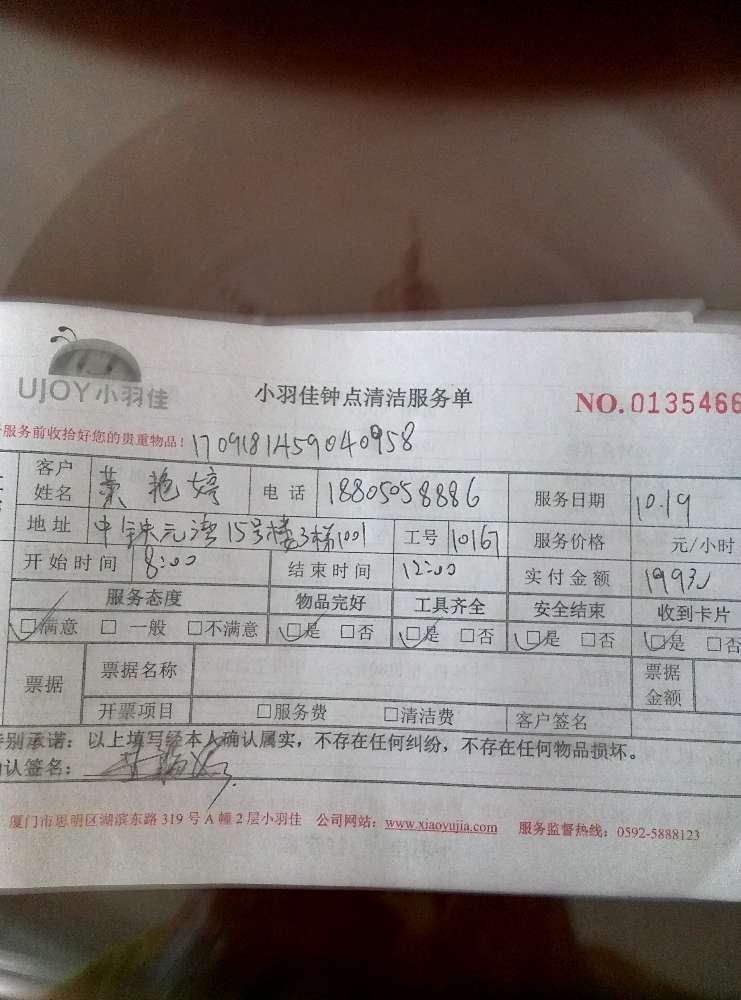 UJOY小羽佳
小羽佳钟点清洁服务单
NO.0135466
服务前收拾好您的贵重物品! 1709181459040958
客户姓名 艳婷 电话 18805058886 服务日期 10.19
地址 中铁元湾15号楼3梯1001 工号 10167 服务价格 元/小时
开始时间 8:00 结束时间 12:00 实付金额 1993
服务态度 物品完好 工具齐全 安全结束 收到卡片
☑满意 □一般 □不满意 ☑是 □否 ☑是 □否 ☑是 □否 ☑是 □否
票据 票据名称 票据金额
开票项目 □服务费 □清洁费 客户签名
特别承诺：以上填写经本人确认属实，不存在任何纠纷，不存在任何物品损坏。
认签名：
厦门市思明区湖滨东路319号A幢2层小羽佳 公司网站：www.xiaoyujia.com 服务监督热线：0592-5888123